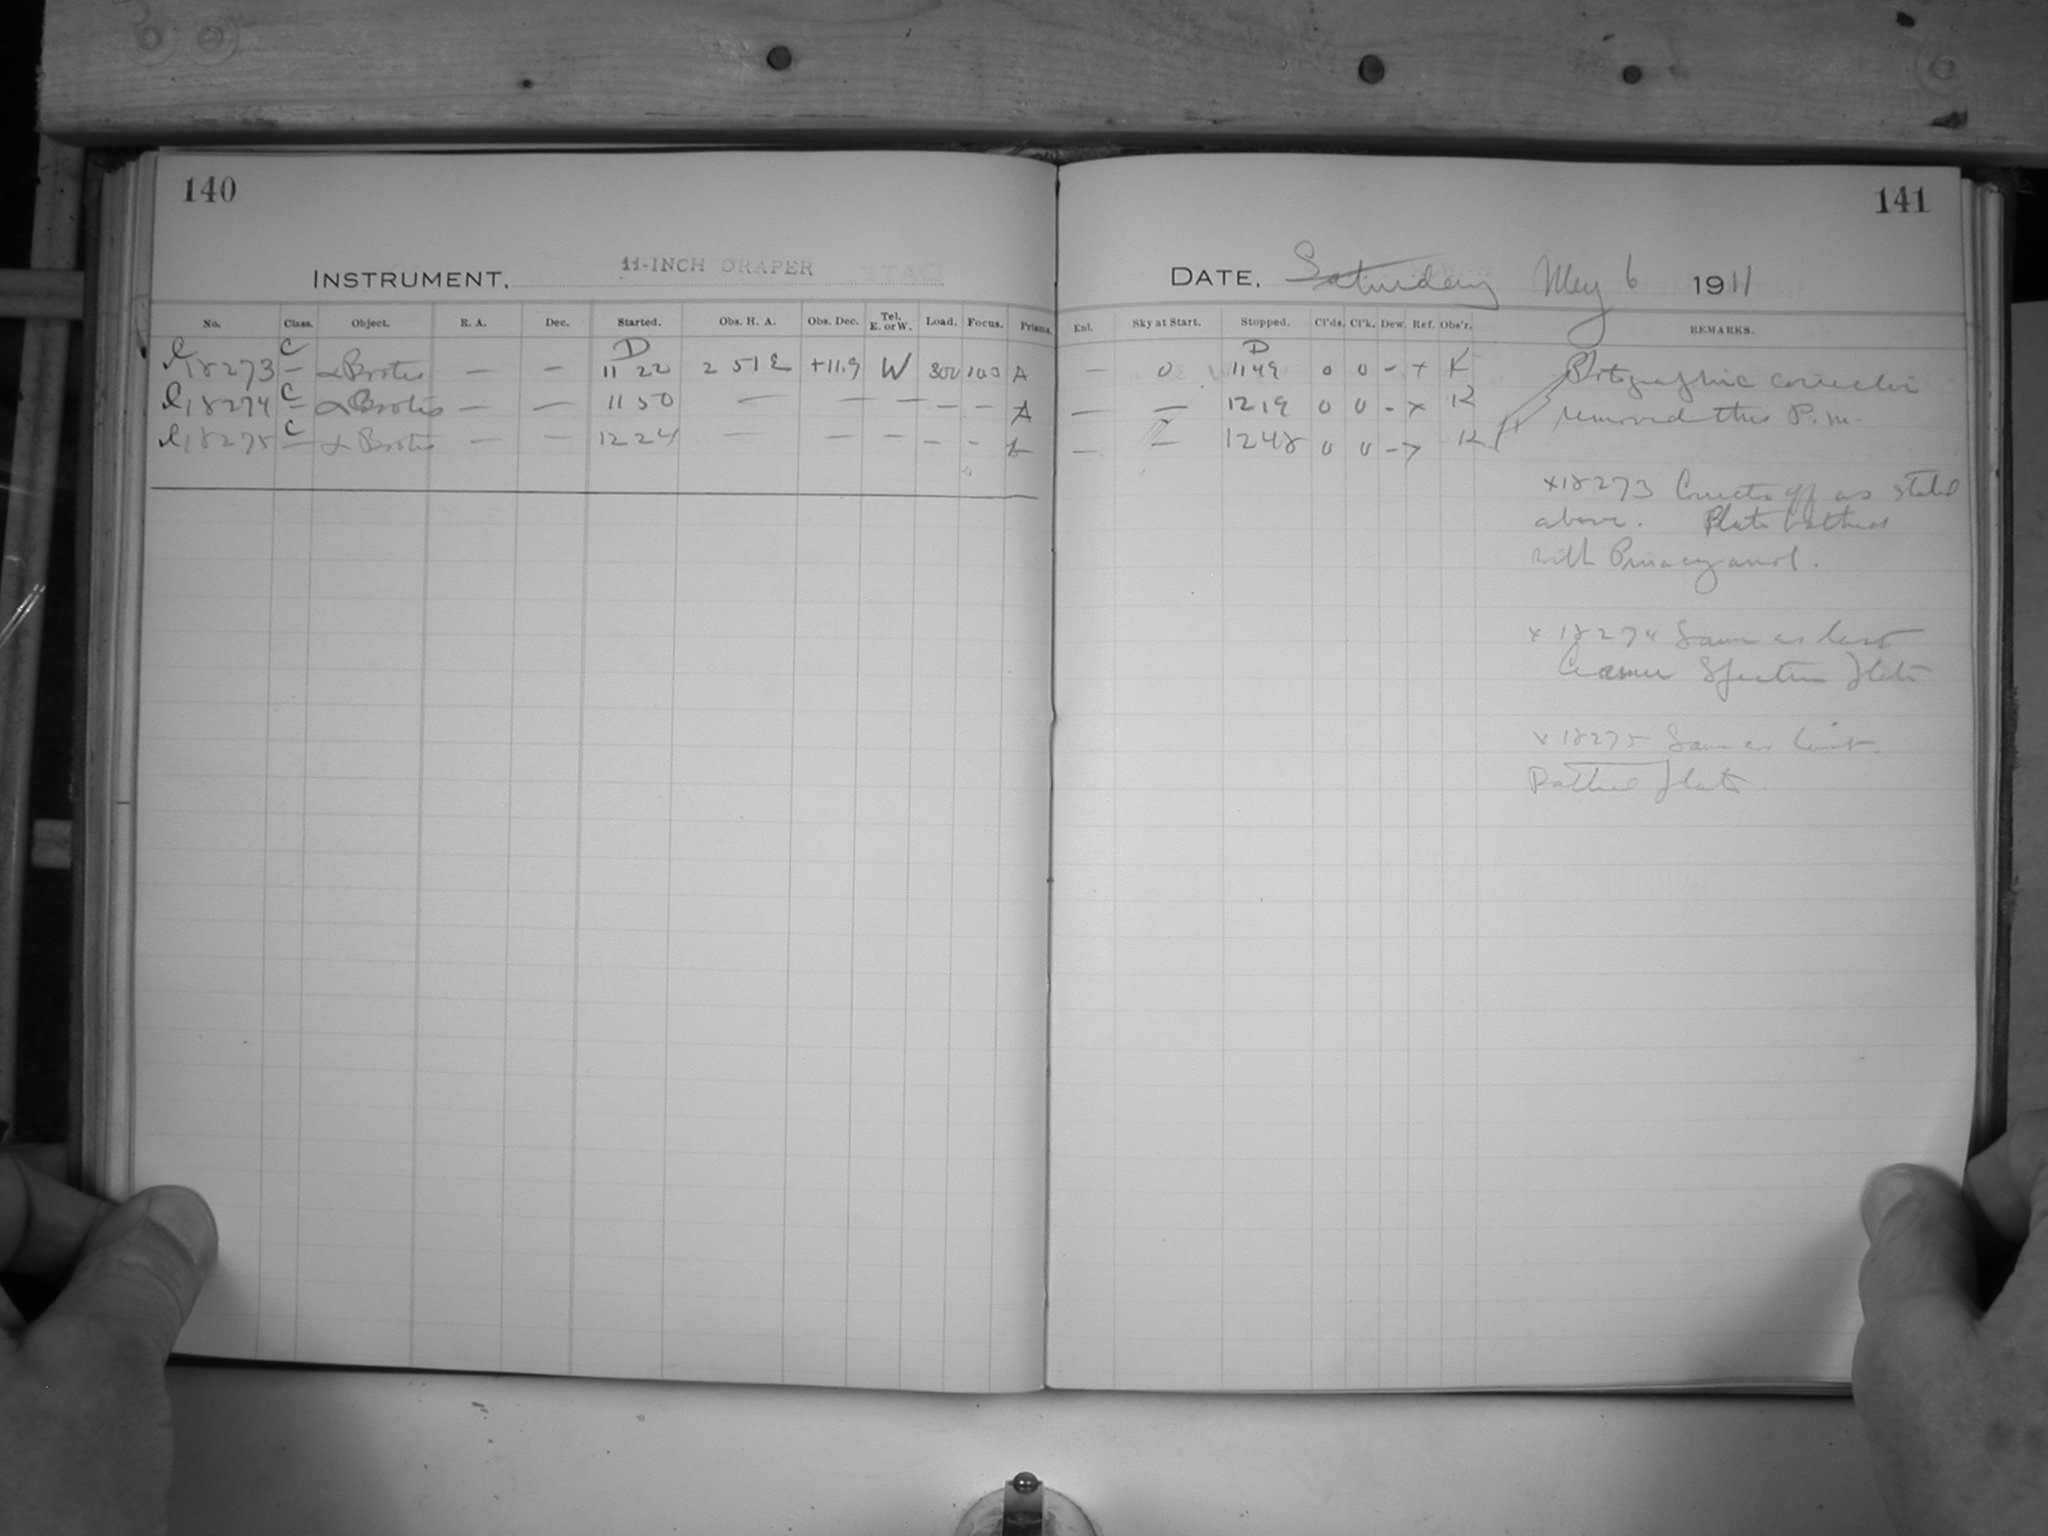 140
INSTRUMENT. 11-INCH DRAPER
No. Class. Object. R. A. Dec. Started. Obs. H. A. Obs. Dec. Tel. E. or W. Load. Focus. Prisms.
I18273 C α Bootis — — D 11 22 2 51 E +11.9 W 300 10.3 A
I18274 C — α Bootis — — 11 50 — — — — — A
I18275 C — α Bootis — — 12 24 — — — — - A
141
DATE. Saturday May 6 1911
Enl. Sky at Start. Stopped. Cl'ds. Cl'k. Dew. Ref. Obs'r. REMARKS.
— 0 D 11 49 0 0 - x K Photographic corrector
— — 12 19 0 0 - x K removed this P.m.
— — 12 48 0 0 - x K
x18273 Corrector off as stated
above. Plate bathed
with Pinacyanol.
x 18274 Same as last
Cramer Spectrum Plate
x 18275 Same as last.
Bathed plate.